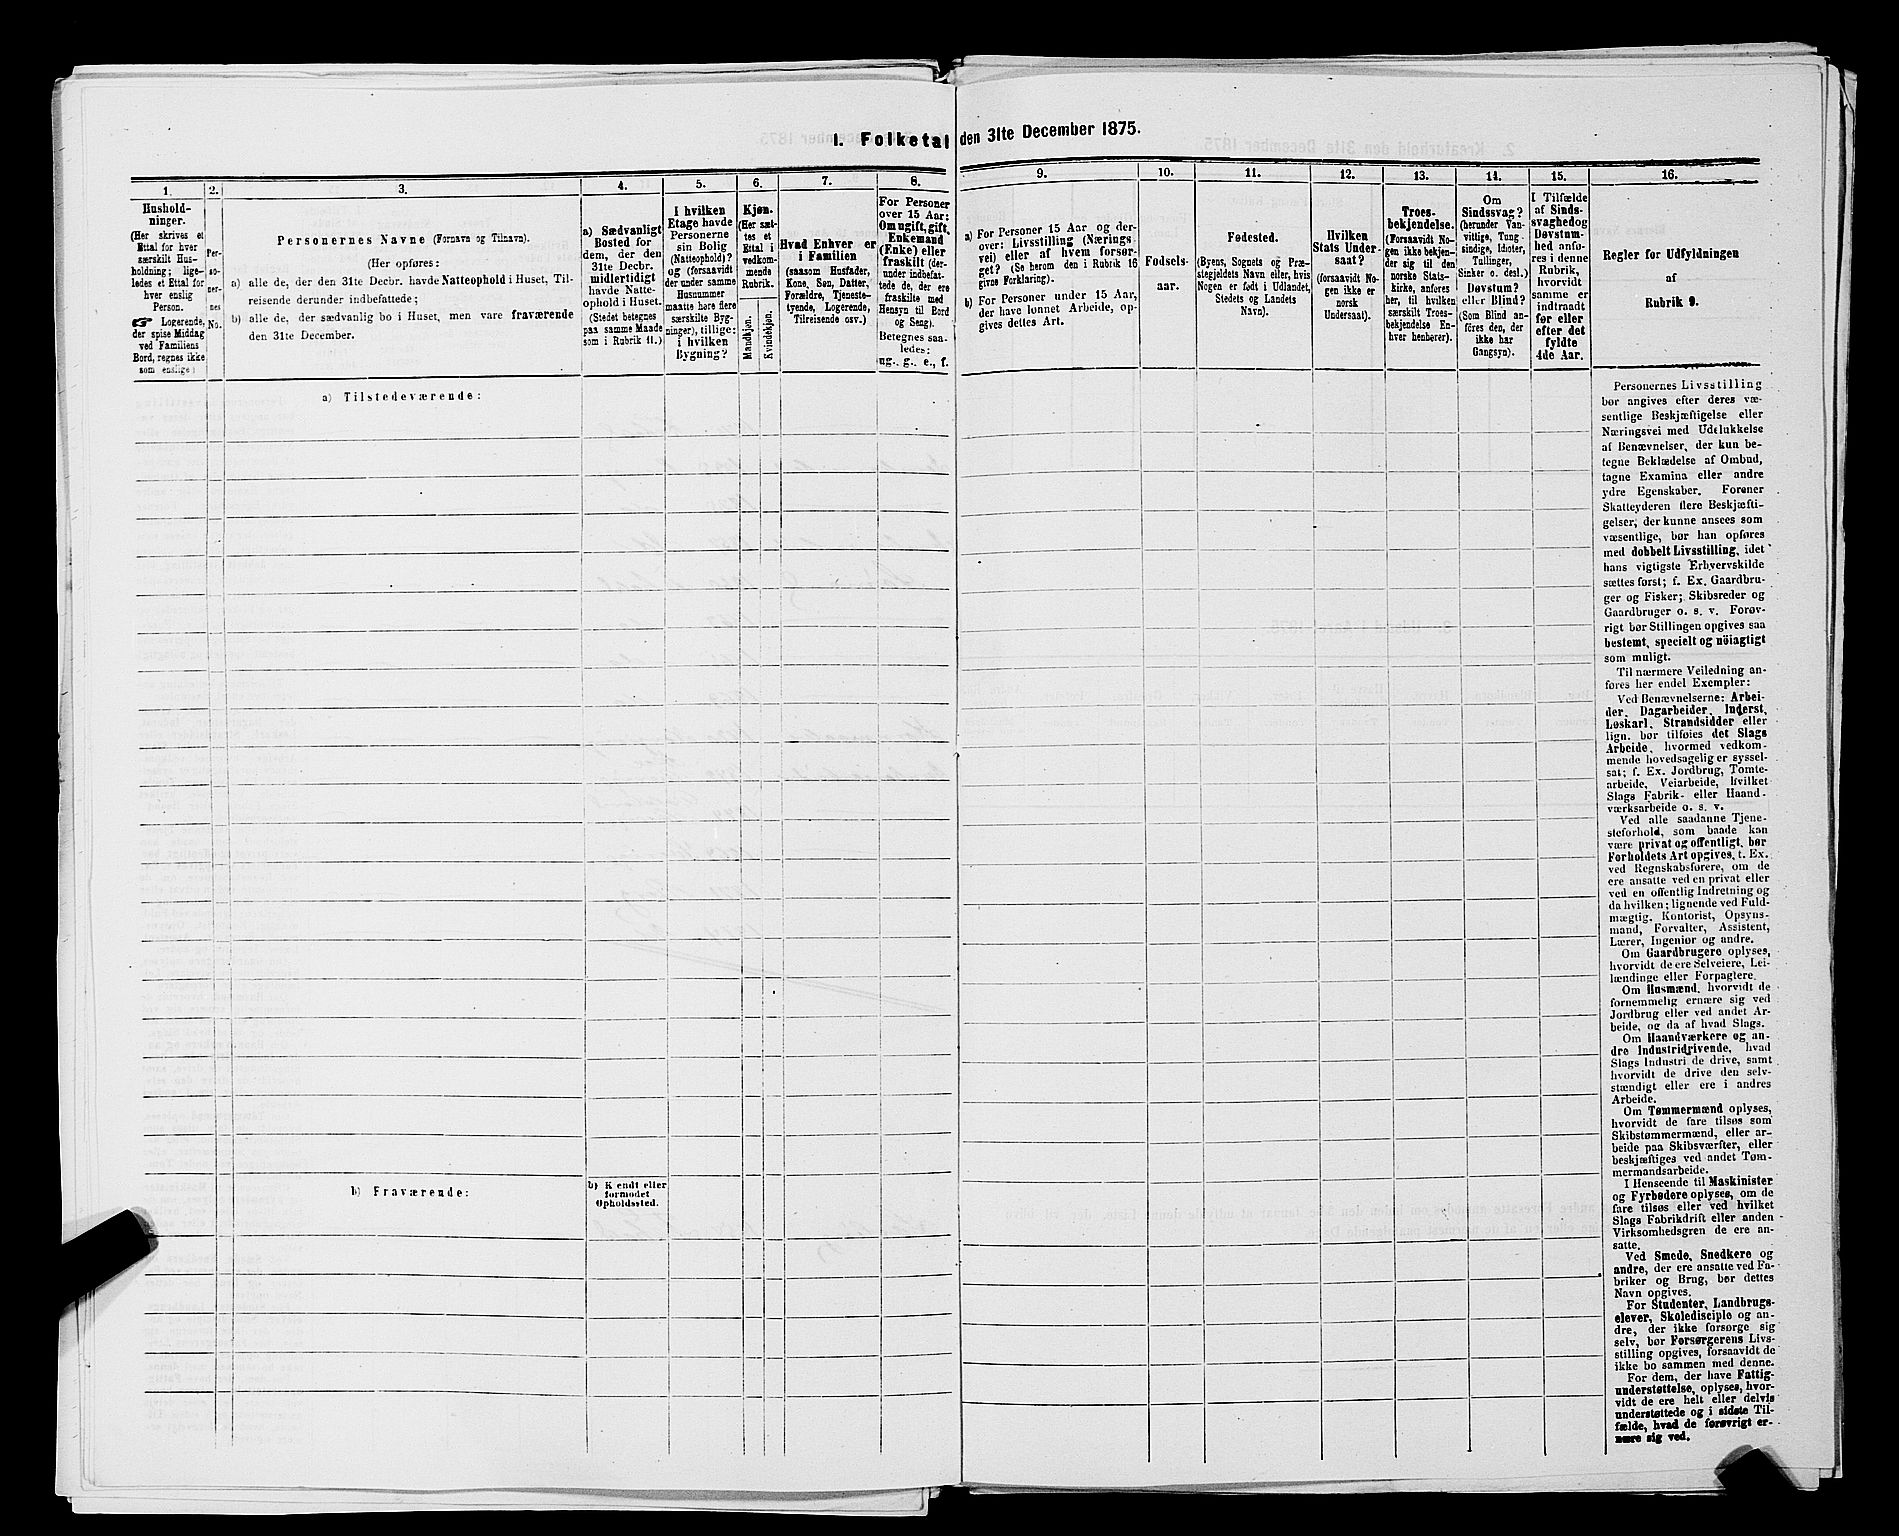 1. Folketal den 31te December 1875.
1.
Hushold-
ninger.
(Her skrives et
Ettal for hver
særskilt Hus-
holdning; lige-
ledes et Ettal for
hver enslig
Person.
☞ Logerende,
der spise Middag
ved Familiens
Bord, regnes ikke
som enslige)
2.
Per-
so-
ner-
nes
No.
3.
Personernes Navne (Fornavn og Tilnavn).
(Her opføres:
a) alle de, der den 31te Decbr. havde Natteophold i Huset, Til-
reisende derunder indbefattede;
b) alle de, der sædvanlig bo i Huset, men vare fraværende
den 31te December.
4.
a) Sædvanligt
Bosted for
dem, der den
31te Decbr.
midlertidigt
havde Natte-
ophold i Huset.
(Stedet betegnes
paa samme Maade
som i Rubrik 11.)
5.
I hvilken
Etage havde
Personerne
sin Bolig
(Natteophold)?
og (forsaavidt
der under samme
Husnummer
maatte høre flere
særskilte Byg-
ninger), tillige:
i hvilken
Bygning?
6.
Kjøn.
(Her sæt-
tes et
Ettal i
vedkom-
mende
Rubrik.
Mandkjøn.
Kvindekjøn.
7.
Hvad Enhver er
i Familien
(saasom Husfader,
Kone, Søn, Datter,
Forældre, Tjeneste-
tyende, Logerende,
Tilreisende osv.)
8.
For Personer
over 15 Aar:
Om ugift, gift,
Enkemand
(Enke) eller
fraskilt (der-
under indbefat-
tede de, der ere
fraskilte med
Hensyn til Bord
og Seng).
Betegnes saa-
ledes:
ug., g., e., f.
9.
a) For Personer 15 Aar og der-
over: Livsstilling (Nærings-
vei) eller af hvem forsør-
get? (Se herom den i Rubrik 16
givne Forklaring).
b) For Personer under 15 Aar,
der have lønnet Arbeide, op-
gives dettes Art.
10.
Fødsels-
aar.
11.
Fødested.
(Byens, Sognets og Præ-
stegjeldets Navn eller, hvis
Nogen er født i Udlandet,
Stedets og Landets
Navn).
12.
Hvilken
Stats Under-
saat?
(forsaavidt No-
gen ikke er
norsk
Undersaat).
13.
Troes-
bekjendelse.
(Forsaavidt No-
gen ikke bekjen-
der sig til den
norske Stats-
kirke, anføres
her, til hvilken
særskilt Troes-
bekjendelse En-
hver henhører).
14.
Om
Sindssvag?
(herunder Van-
vittige, Tung-
sindige, Idioter,
Tullinger,
Sinker o. desl.)
Døvstum?
eller Blind?
(Som Blind an-
føres den, der
ikke har
Gangsyn).
15.
I Tilfælde
af Sinds-
svaghed og
Døvstum-
hed anfø-
res i denne
Rubrik,
hvorvidt
samme er
indtraadt
før eller
efter det
fyldte
4de Aar.
16.
Regler for Udfyldningen
af
Rubrik 9.
a) Tilstedeværende:
b) Fraværende:
b) Kjendt eller
formodet
Opholdssted.
Personernes Livsstilling
bør angives efter deres væ-
sentlige Beskjæftigelse eller
Næringsvei med Udelukkelse
af Benævnelser, der kun be-
tegne Beklædelse af Ombud,
tagne Examina eller andre
ydre Egenskaber. Forener
Skatteyderen flere Beskjæfti-
gelser, der kunne ansees som
væsentlige, bør han opføres
med dobbelt Livsstilling, idet
hans vigtigste Erhvervskilde
sættes først; f. Ex. Gaardbru-
ger og Fisker; Skibsreder og
Gaardbruger o. s. v. Forøv-
rigt bør Stillingen opgives saa
bestemt, specielt og nöiagtigt
som muligt.
Til nærmere Veiledning an-
føres her endel Exempler:
Ved Benævnelserne: Arbei-
der, Dagarbeider, Inderst,
Løskarl, Strandsidder eller
lign. bør tilføies det Slags
Arbeide, hvormed vedkom-
mende hovedsagelig er syssel-
sat; f. Ex. Jordbrug, Tomte-
arbeide, Veiarbeide, hvilket
Slags Fabrik- eller Haand-
værksarbeide o. s. v.
Ved alle saadanne Tjene-
steforhold, som baade kan
være privat og offentligt, bør
Forholdets Art opgives, t. Ex.
ved Regnskabsførere, om de
ere ansatte ved en privat eller
ved en offentlig Indretning og
da hvilken; lignende ved Fuld-
mægtig, Kontorist, Opsyns-
mand, Forvalter, Assistent,
Lærer, Ingeniør og andre.
Om Gaardbrugere oplyses,
hvorvidt de ere Selveiere, Lei-
lændinge eller Forpagtere.
Om Husmænd, hvorvidt de
fornemmelig ernære sig ved
Jordbrug eller ved andet Ar-
beide, og da af hvad Slags.
Om Haandværkere og an-
dre Industridrivende, hvad
Slags Industri de drive, samt
hvorvidt de drive den selv-
stændigt eller ere i andres
Arbeide.
Om Tømmermænd oplyses,
hvorvidt de fare tilsøs som
Skibstømmermænd, eller ar-
beide paa Skibsværfter, eller
beskjæftiges ved andet Tøm-
mermandsarbeide.
I Henseende til Maskinister
og Fyrbødere oplyses, om de
fare tilsøs eller ved hvilket
Slags Fabrikdrift eller anden
Virksomhedsgren de ere an-
satte.
Ved Smede, Snedkere og
andre, der ere ansatte ved Fa-
briker og Brug, bør dettes
Navn opgives.
For Studenter, Landbrugs-
elever, Skoledisciple og an-
dre, der ikke forsørge sig
selv, bør Forsørgerens Livs-
stilling opgives, forsaavidt de
ikke bo sammen med denne.
For dem, der have Fattig-
understøttelse, oplyses, hvor-
vidt de ere helt eller delvis
understøttede og i sidste Til-
fælde, hvad de forøvrigt er-
nære sig ved.